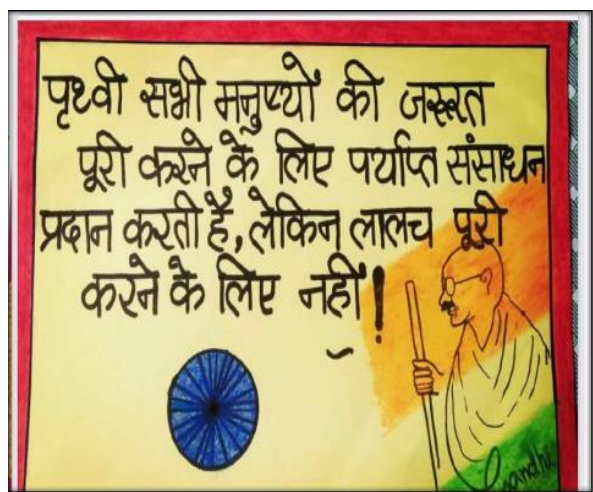 पृथ्वी सभी मनुष्यों की जरूरत
पूरी करने के लिए पर्याप्त संसाधन
प्रदान करती है, लेकिन लालच पूरी
करने के लिए नहीं!
Gandhi